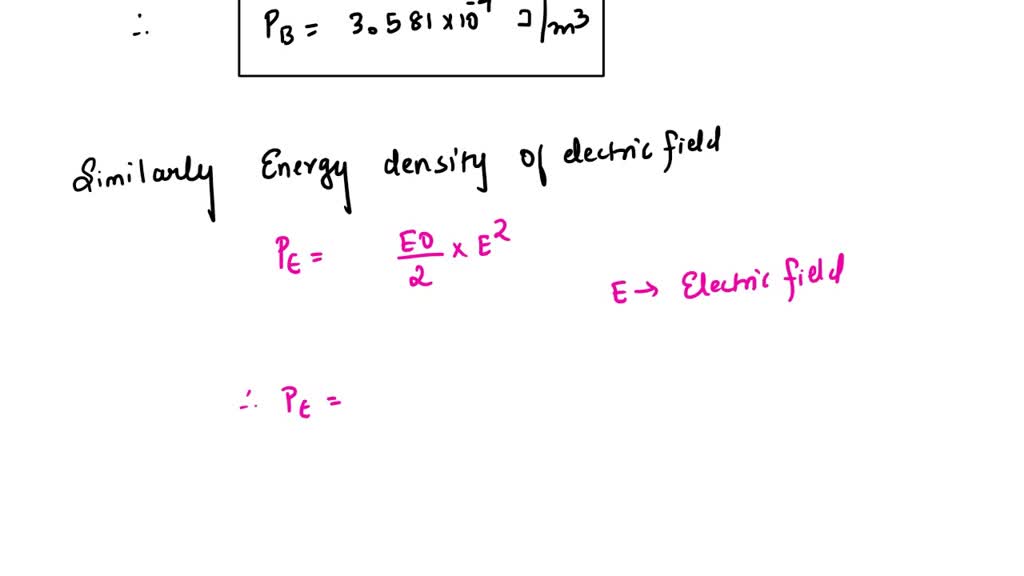 ∴ P_B = 3.581 × 10 J/m³
Similarly Energy density of electric field
P_E = E0/2 × E²
E → Electric field
∴ P_E =